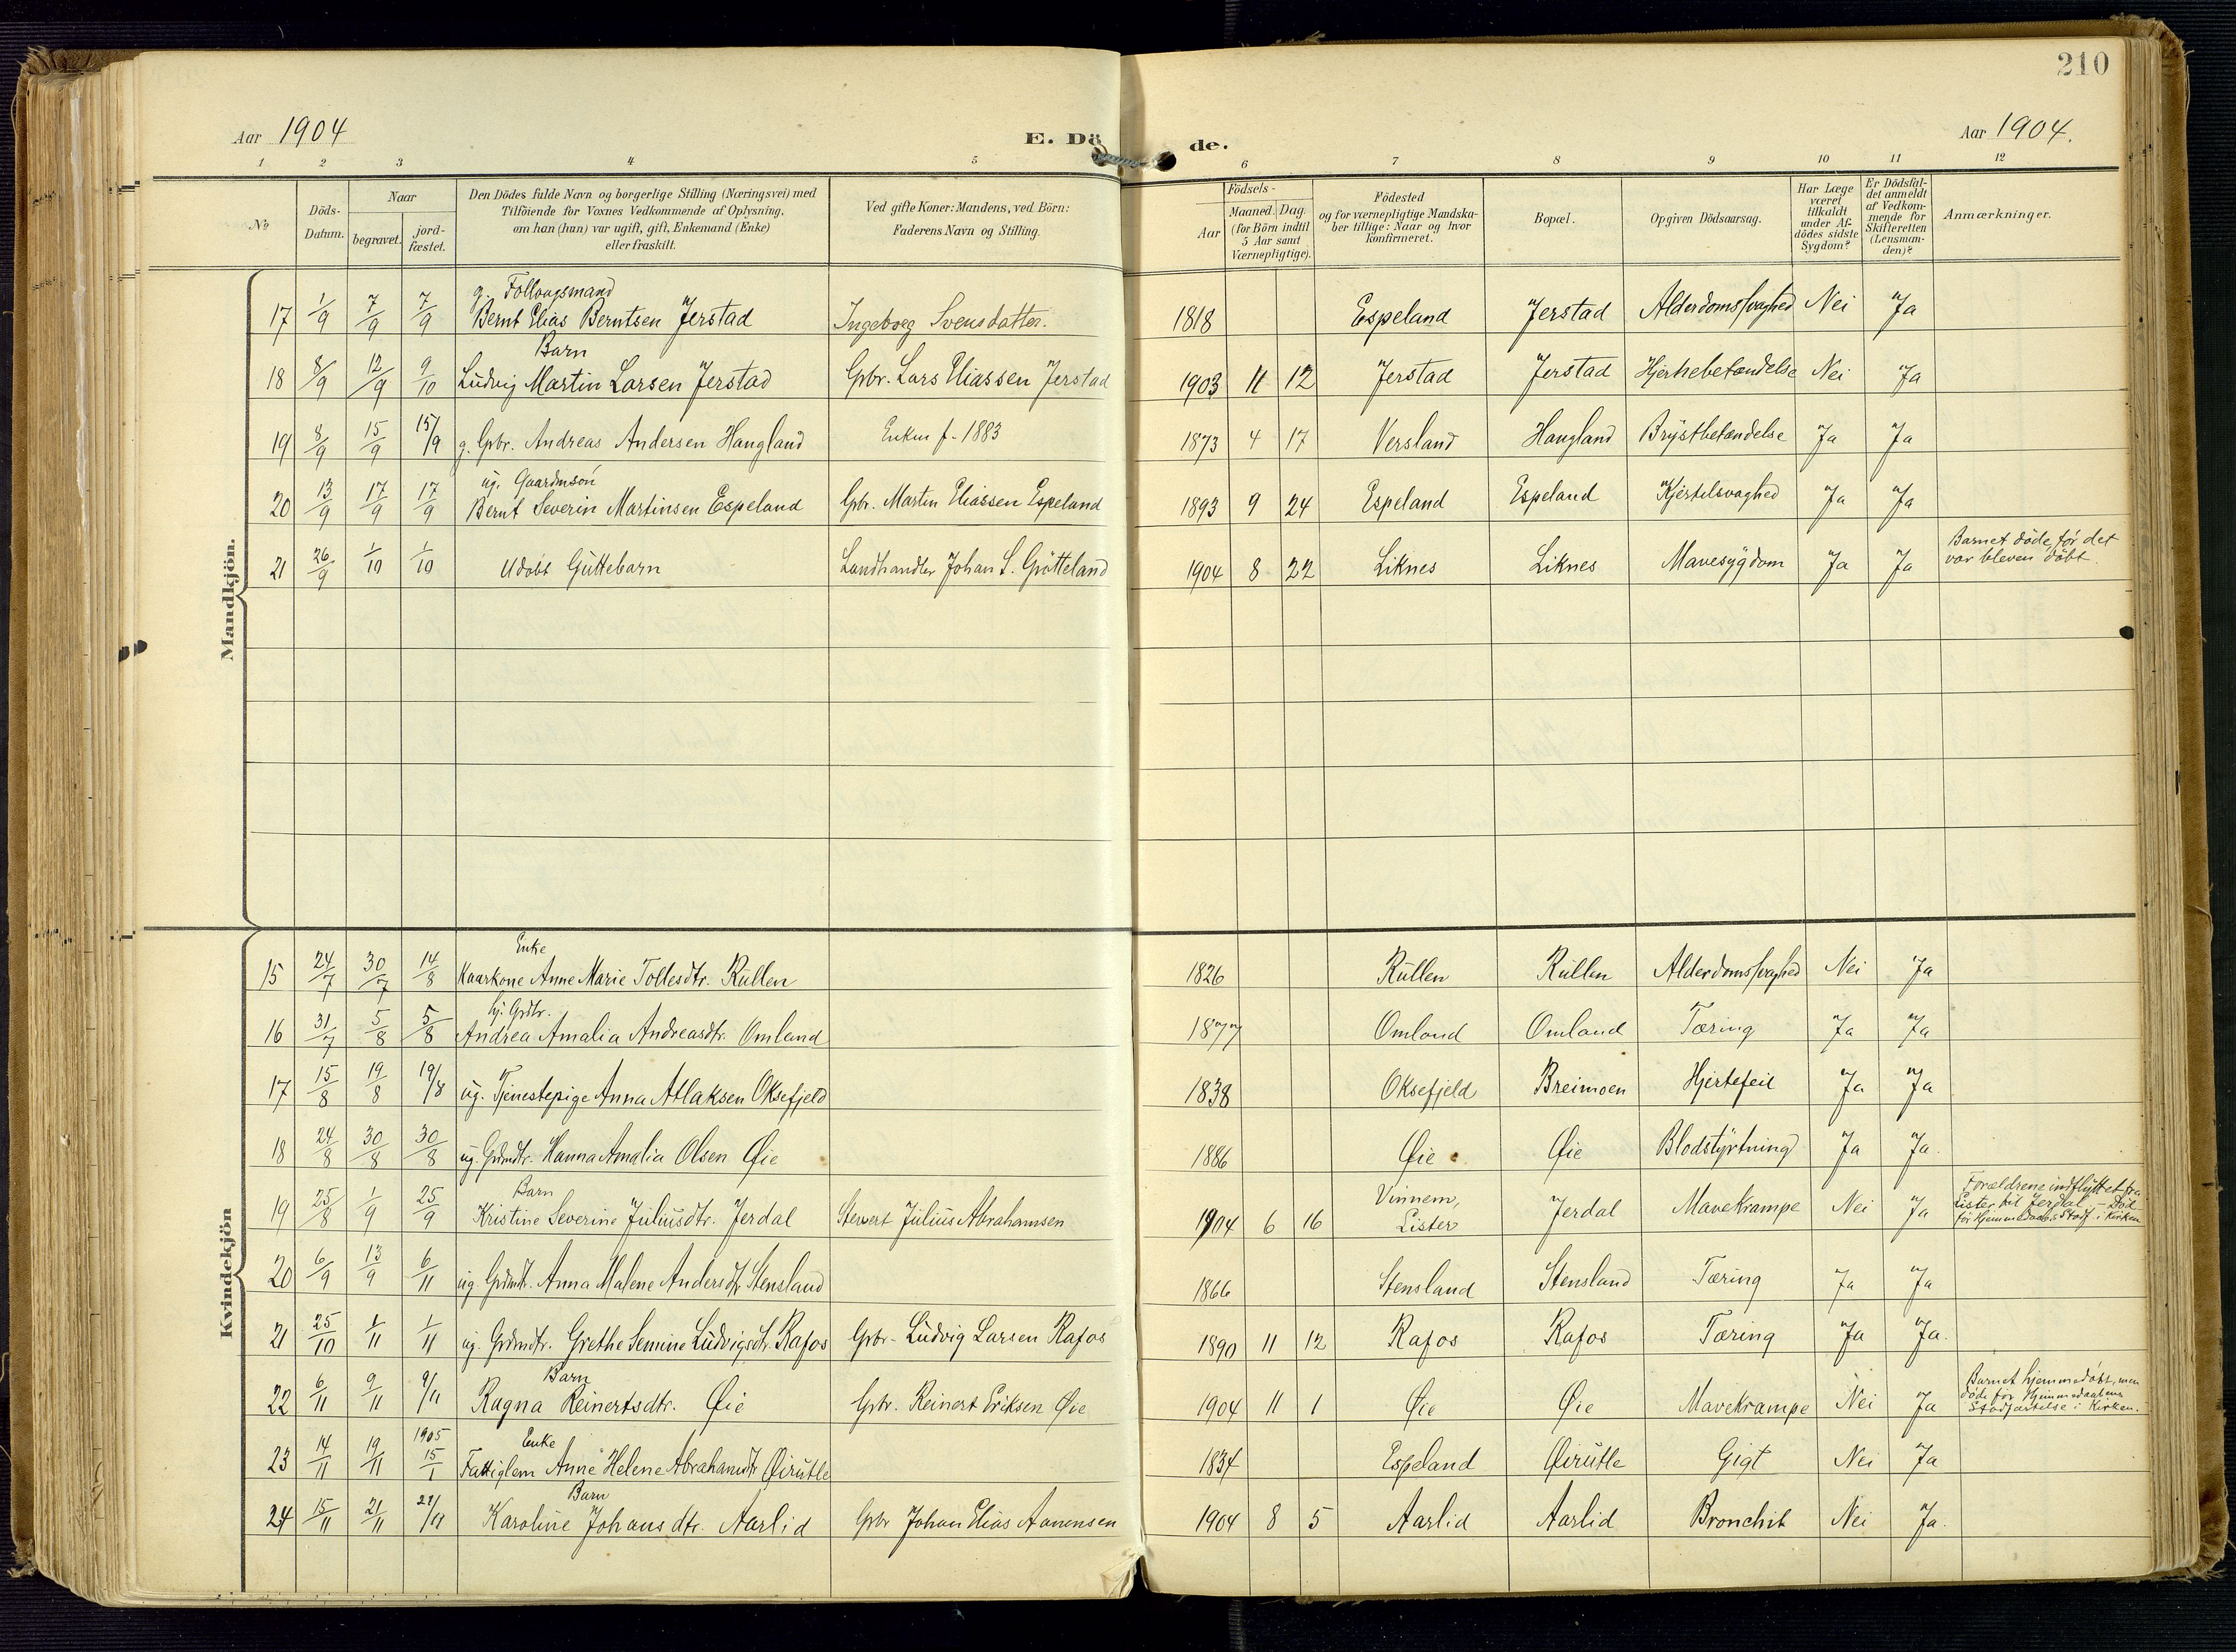 210
Aar 1904
E. Dö de.
Aar 1904.
1 2 3 4 5 6 7 8 9 10 11 12
No
Döds-Datum.
Naar
begravet.
jord-fæstet.
Den Dödes fulde Navn og borgerlige Stilling (Næringsvei) med
Tilföiende for Voxnes Vedkommende af Oplysning,
om han (hun) var ugift, gift, Enkemand (Enke)
eller fraskilt.
Ved gifte Koner: Mandens, ved Börn:
Faderens Navn og Stilling.
Födsels-
Aar
Maaned. Dag.
(for Börn indtil
5 Aar samt
Værnepligtige).
Födested
og for værnepligtige Mandska-
ber tillige: Naar og hvor
konfirmeret.
Bopæl.
Opgiven Dödsaarsag.
Har Læge
været
tilkaldt
under Af-
dödes sidste
Sygdom?
Er Dödsfal-
det anmeldt
af Vedkom-
mende for
Skifteretten
(Lensman-
den)?
Anmærkninger.
Mandkjön.
g. Follaugsmand
17 1/9 7/9 7/9 Bernt Elias Berntsen Jerstad Ingeborg Svensdatter. 1818 Espeland Jerstad Alderdomssvaghed Nei Ja
Barn
18 8/9 12/9 9/10 Ludvig Martin Larsen Jerstad Gbr. Lars Eliassen Jerstad 1903 11 12 Jerstad Jerstad Hjertebetændelse Nei Ja
19 8/9 15/9 15/9 g. Gbr. Andreas Andersen Haugland f. 1883 1873 4 17 Versland Haugland Brystbetændelse Ja Ja
ug. Gaardmsön
20 13/9 17/9 17/9 Bernt Severin Martinsen Espeland Gbr. Martin Eliassen Espeland 1893 9 24 Espeland Espeland Kjertelsvaghed Ja Ja
21 26/9 1/10 1/10 Udöbt Guttebarn Landhandler Johan S. Gjötteland 1904 8 22 Liknes Liknes Mavesygdom Ja Ja Barnet döde, för det
var bleven döbt.
Kvindekjön
Enke
15 24/7 30/7 14/8 Kaarkone Anne Marie Tollesdtr. Rullen 1826 Rullen Rullen Alderdomssvaghed Nei Ja
16 31/7 5/8 5/8 Andrea Amalia Andreasdtr. Omland 1877 Omland Omland Tæring Ja Ja
17 15/8 19/8 19/8 ug. Tjenestepige Anna Atlaksen Oksefjeld 1838 Oksefjeld Breimoen Hjertefeil Ja Ja
18 24/8 30/8 30/8 ug. Grdmdtr. Hanna Amalia Olsen Øie 1886 Øie Øie Blodstyrtning Ja Ja.
Barn
19 25/8 1/9 25/9 Kristine Severine Juliusdtr. Jerdal Stewert Julius Abrahamsen 1904 6 16 Vinnem,
Lister Jerdal Mavekrampe Nei Ja Forældrene indflyttet fra
Lister til Jerdal. – Död
för Hjemmedaabs Stadf. i Kirken
20 6/9 13/9 6/11 ug. Grdmdt. Anna Malene Andersdtr. Stensland 1866 Stensland Stensland Tæring Ja Ja
21 25/10 1/11 1/11 ug. Grdmdtr. Grethe Semine Ludvigsdtr. Rafos Gbr. Ludvig Larsen Rafos 1890 11 12 Rafos Rafos Tæring Ja Ja.
Barn
22 6/11 9/11 9/11 Ragna Reinertsdtr. Øie Gbr. Reinert Eriksen Øie 1904 11 1 Øie Øie Mavekrampe Nei Ja Barnet hjemmedöbt, men
döde för Hjemmedaabens
Stadfæstelse i Kirken.
Enke 1905
23 14/11 19/11 15/1 Fattiglem Anne Helene Abrahamsdtr Øirutle 1834 Espeland Øirutle Gigt Nei Ja
Barn
24 15/11 21/11 21/11 Karoline Johansdtr. Aarlid Gbr Johan Elias Aanensen 1904 8 5 Aarlid Aarlid Bronchit Nei Ja.